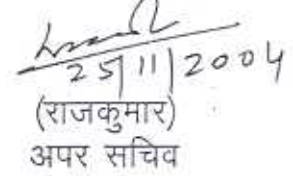 25/11/2004
(राजकुमार)
अपर सचिव